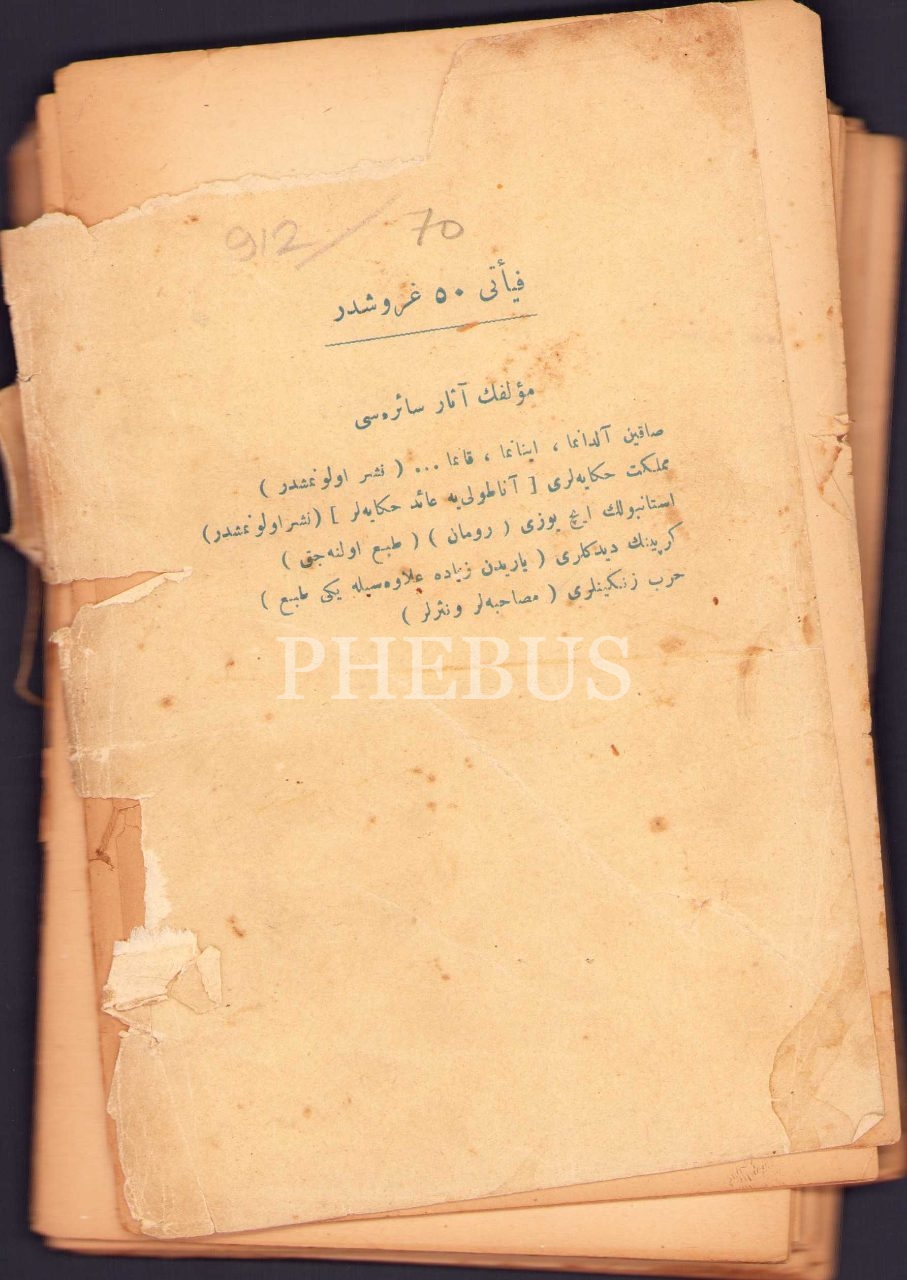 912 / 70
فيأتی ٥٠ غروشدر
مؤلفك آثار سائره‌سی
صاقين آلدانما ، اينانما ، قانما ... ( نشر اولونمشدر )
مملكت حكايه‌لری [ آناطولی‌يه عائد حكايه‌لر ] ( نشر اولونمشدر )
استانبولك ايچ يوزی ( رومان ) ( طبع اولنه‌جق )
كرپينك ديدكلری ( ياريدن زياده علاوه‌سيله يكی طبع )
حرب زنكينلری ( مصاحبه‌لر ونثرلر )
PHEBUS